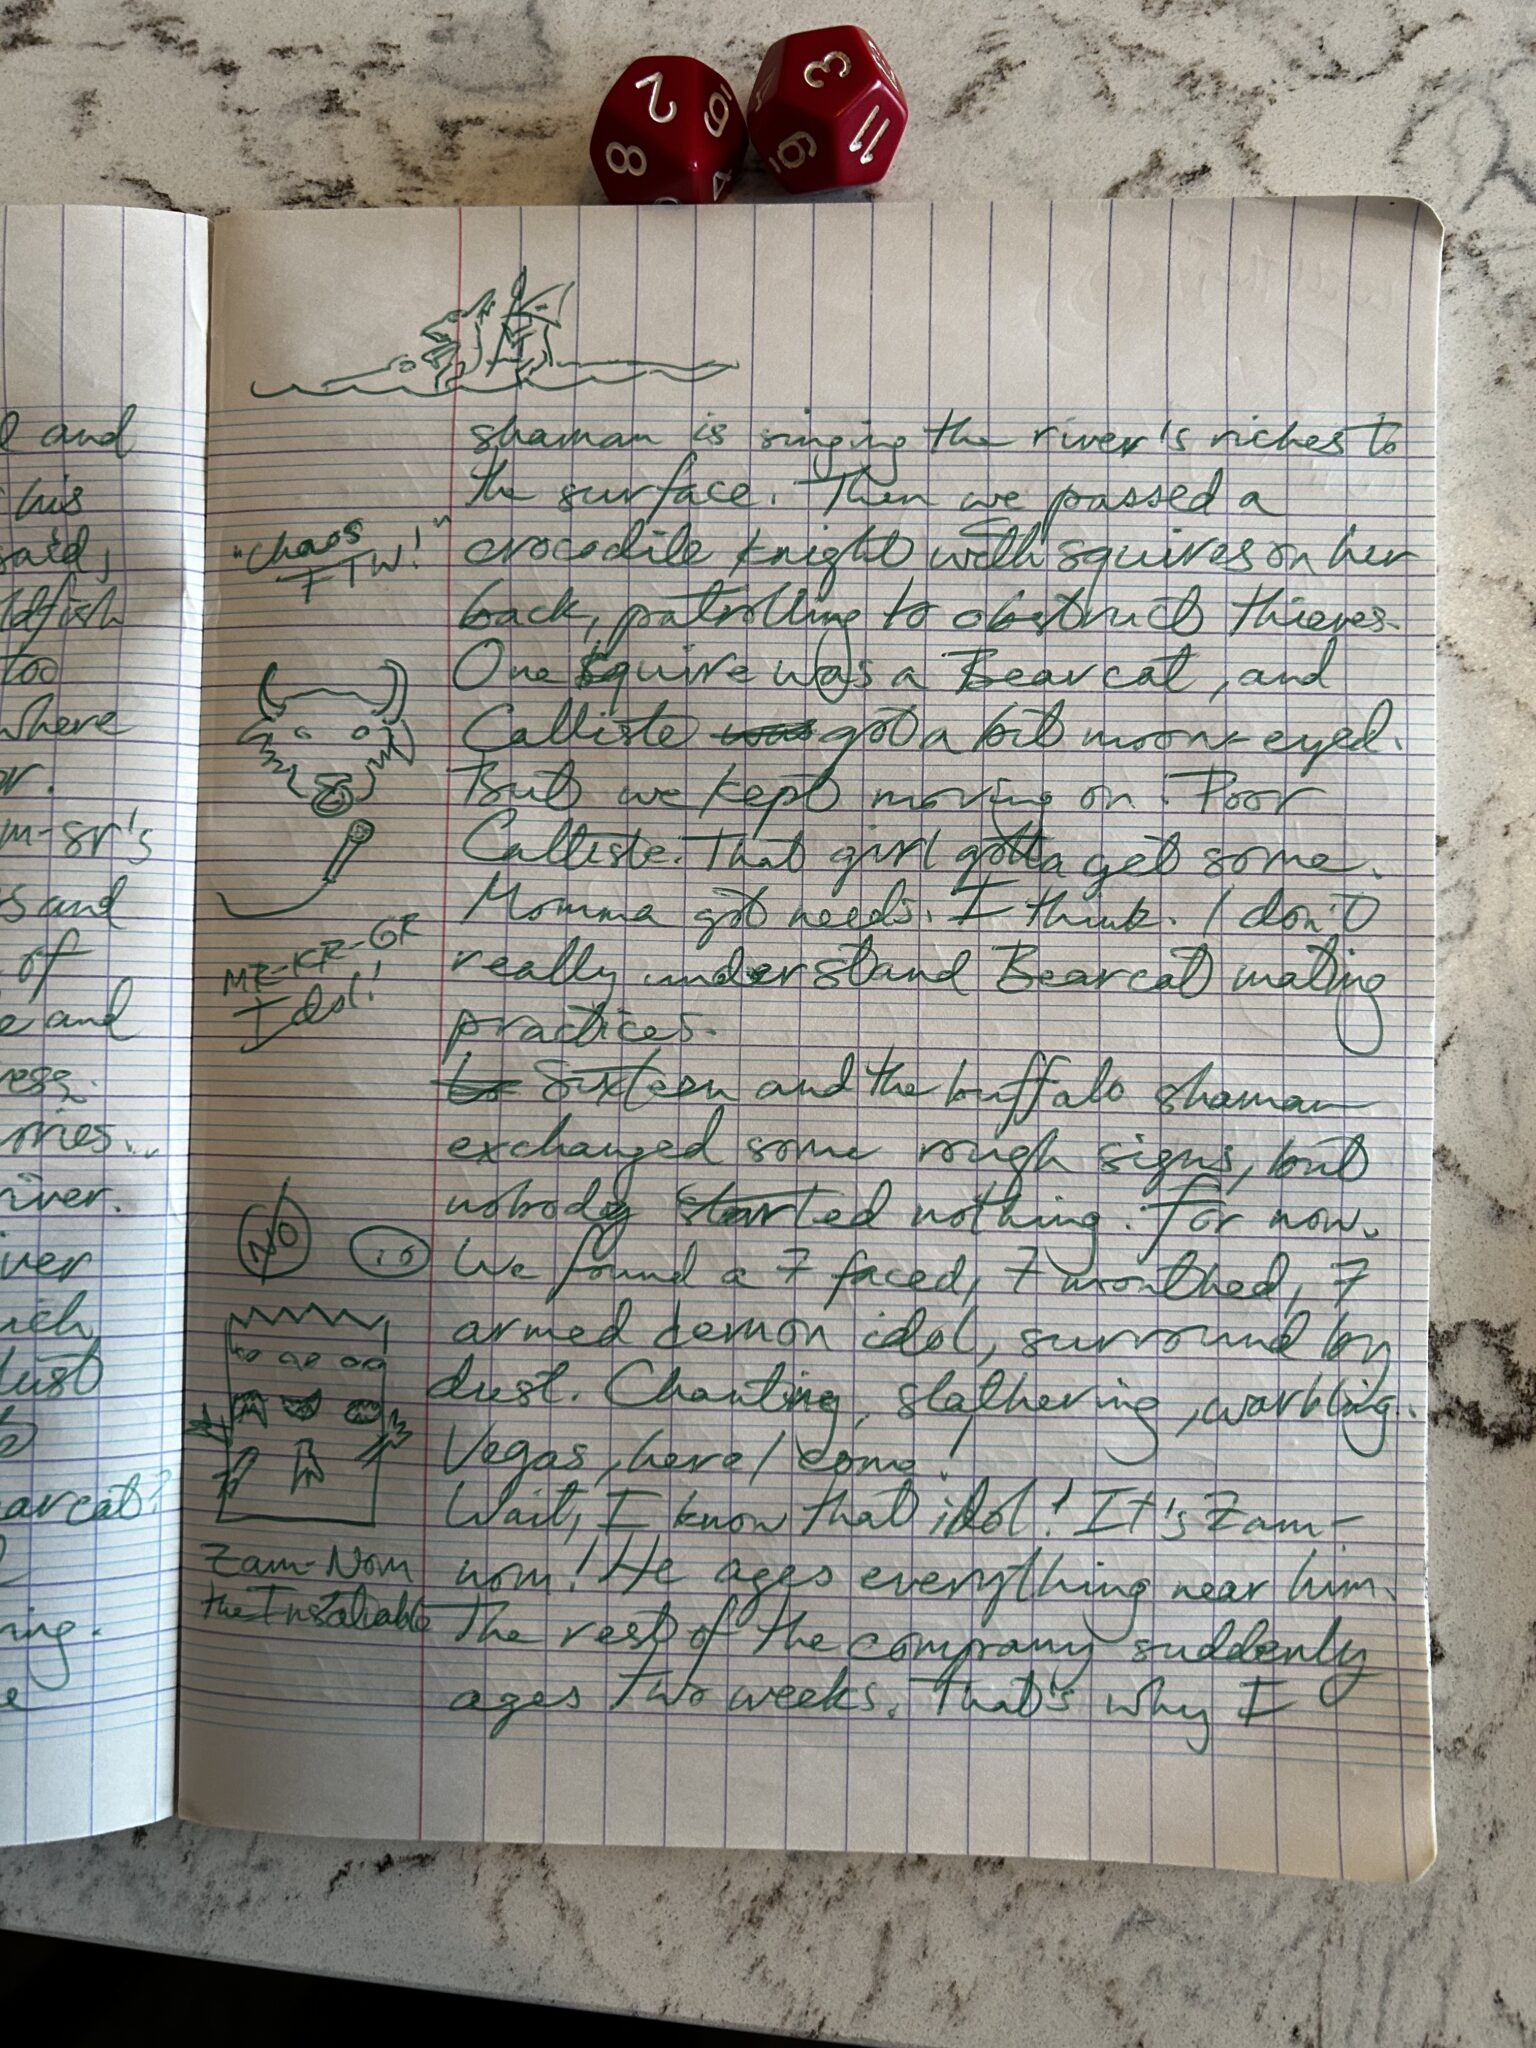 2
6
8
4
3
11
9
l and
his
said,
ldfish
too
where
or.
m-sr's
s and
of
e and
ress.
ories...
river.
iver
ich
dust
arcat?
ring.
e
shaman is singing the river's riches to
the surface. Then we passed a
crocodile knight with squires on her
back, patrolling to obstruct thieves.
One squire was a Bearcat, and
Calliste was got a bit moon-eyed.
But we kept moving on. Poor
Calliste. That girl gotta get some.
Momma got needs. I think. I don't
really understand Bearcat mating
practices.
Sixteen and the buffalo shaman
exchanged some rough signs, but
nobody started nothing. For now.
We found a 7 faced, 7 mouthed, 7
armed demon idol, surround by
dust. Chanting, slathering, warbling.
Vegas, here I come!
Wait, I know that idol! It's Zam-
nom! He ages everything near him.
The rest of the company suddenly
ages two weeks. That's why I
"Chaos
FTW!"
MR-KR-GR
Idol!
NO
Zam-Nom
the Insatiable